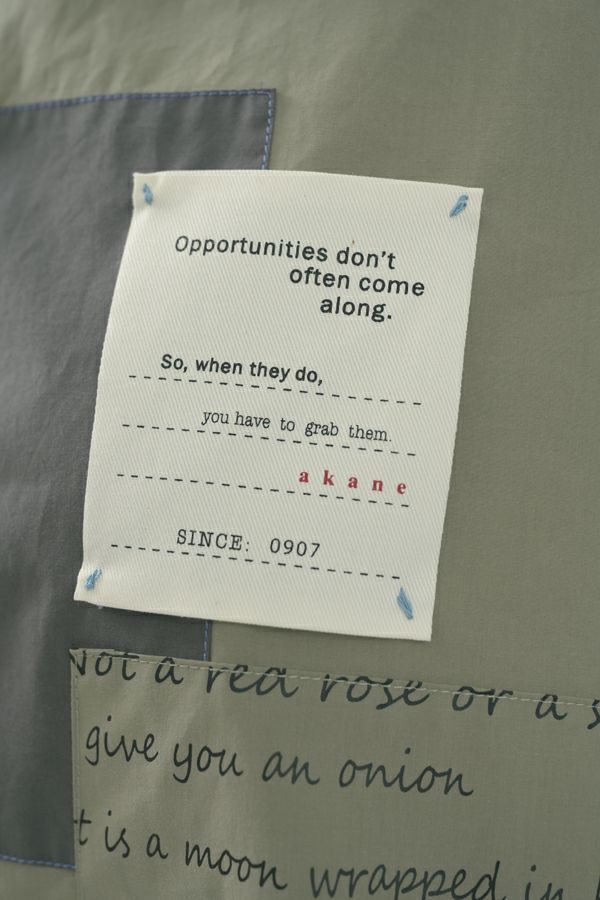 Opportunities don't
often come
along.
So, when they do,
you have to grab them.
akane
SINCE: 0907
Not a red rose or a s
give you an onion
t is a moon wrapped in